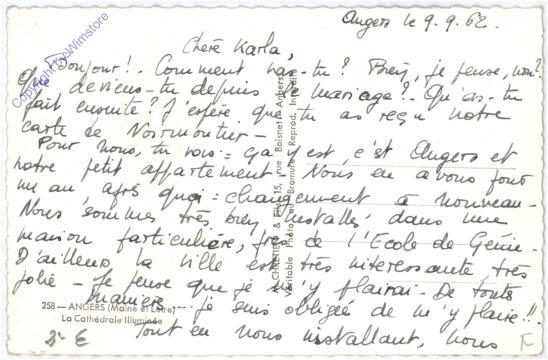 Angers le 9.9.62.
Chère Karla,
Bonjour! Comment vas-tu? Bien, je pense, non?
Que deviens-tu depuis le mariage? Qu'as-tu
fait ensuite? J'espère que tu as reçu notre
carte de Noirmoutier -
Pour nous, tu vois = ça y est, c'est Angers et
notre petit appartement. Nous en avons pour
un an, après quoi = changement à nouveau -
Nous sommes très bien installés dans une
maison particulière, près de l'Ecole de Génie -
D'ailleurs la ville est très interessante, très
jolie - Je pense que je m'y plairai - De toute
manière... je suis obligée de m'y plaire!!
Tout en nous installant, nous
258 — ANGERS (Maine et Loire)
La Cathédrale Illuminée
2- E
CHRETIEN & Fils, 15, rue Boisnet - Angers
Véritable Photo au Bromure - Reprod. Interdite
Copyright by Wimstore